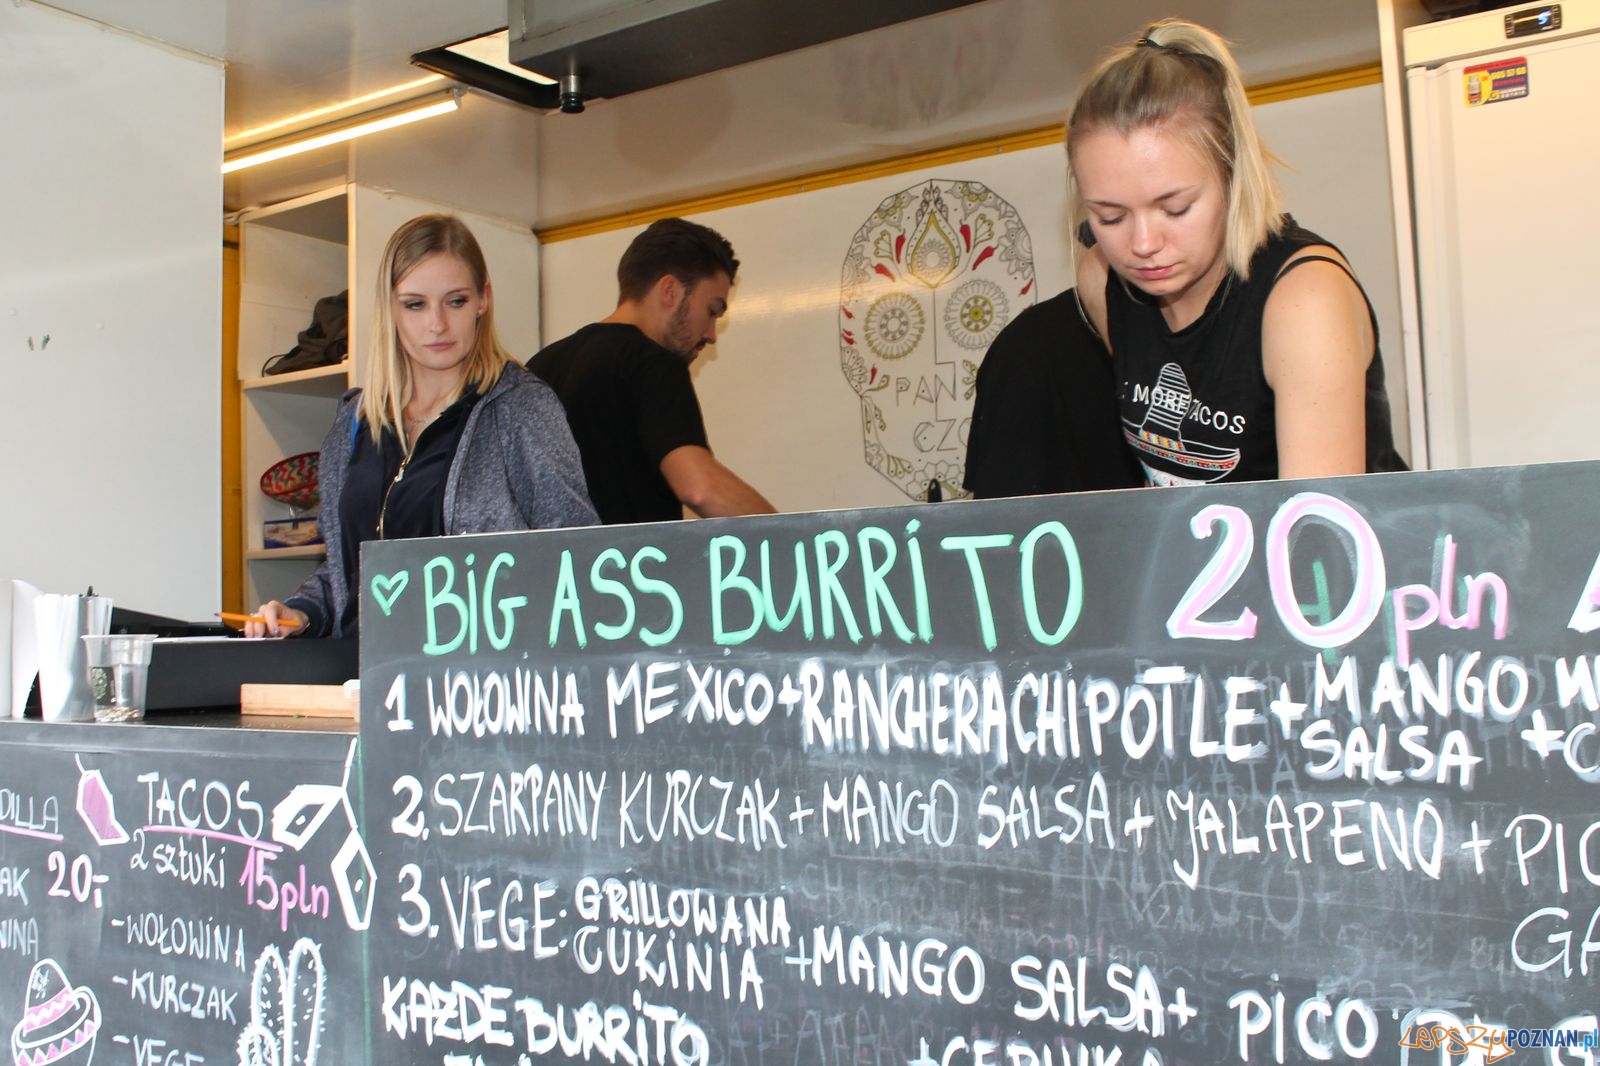 PAN
MORE TACOS
BIG ASS BURRITO 20 pln
1 WOŁOWINA MEXICO + RANCHERA CHIPOTLE + MANGO SALSA +
2. SZARPANY KURCZAK + MANGO SALSA + JALAPENO + PIC
3. VEGE: GRILLOWANA CUKINIA + MANGO SALSA + PICO
KAŻDE BURRITO
DILLA
AK 20,-
TACOS
2 sztuki 15 pln
- WOŁOWINA
- KURCZAK
- VEGE
LEPSZY POZNAN.pl